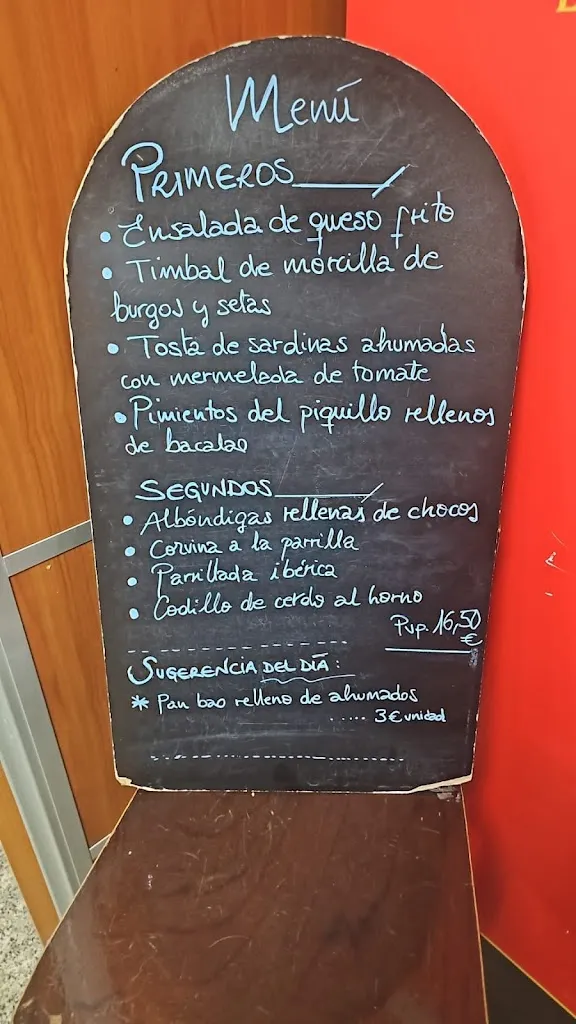 Menú
PRIMEROS
• Ensalada de queso frito
• Timbal de morcilla de
burgos y setas
• Tosta de sardinas ahumadas
con mermelada de tomate
• Pimientos del piquillo rellenos
de bacalao
SEGUNDOS
• Albóndigas rellenas de chocos
• Corvina a la parrilla
• Parrillada ibérica
• Codillo de cerdo al horno
Pvp. 16,50
€
SUGERENCIA DEL DÍA:
* Pan bao relleno de ahumados
..... 3€ unidad